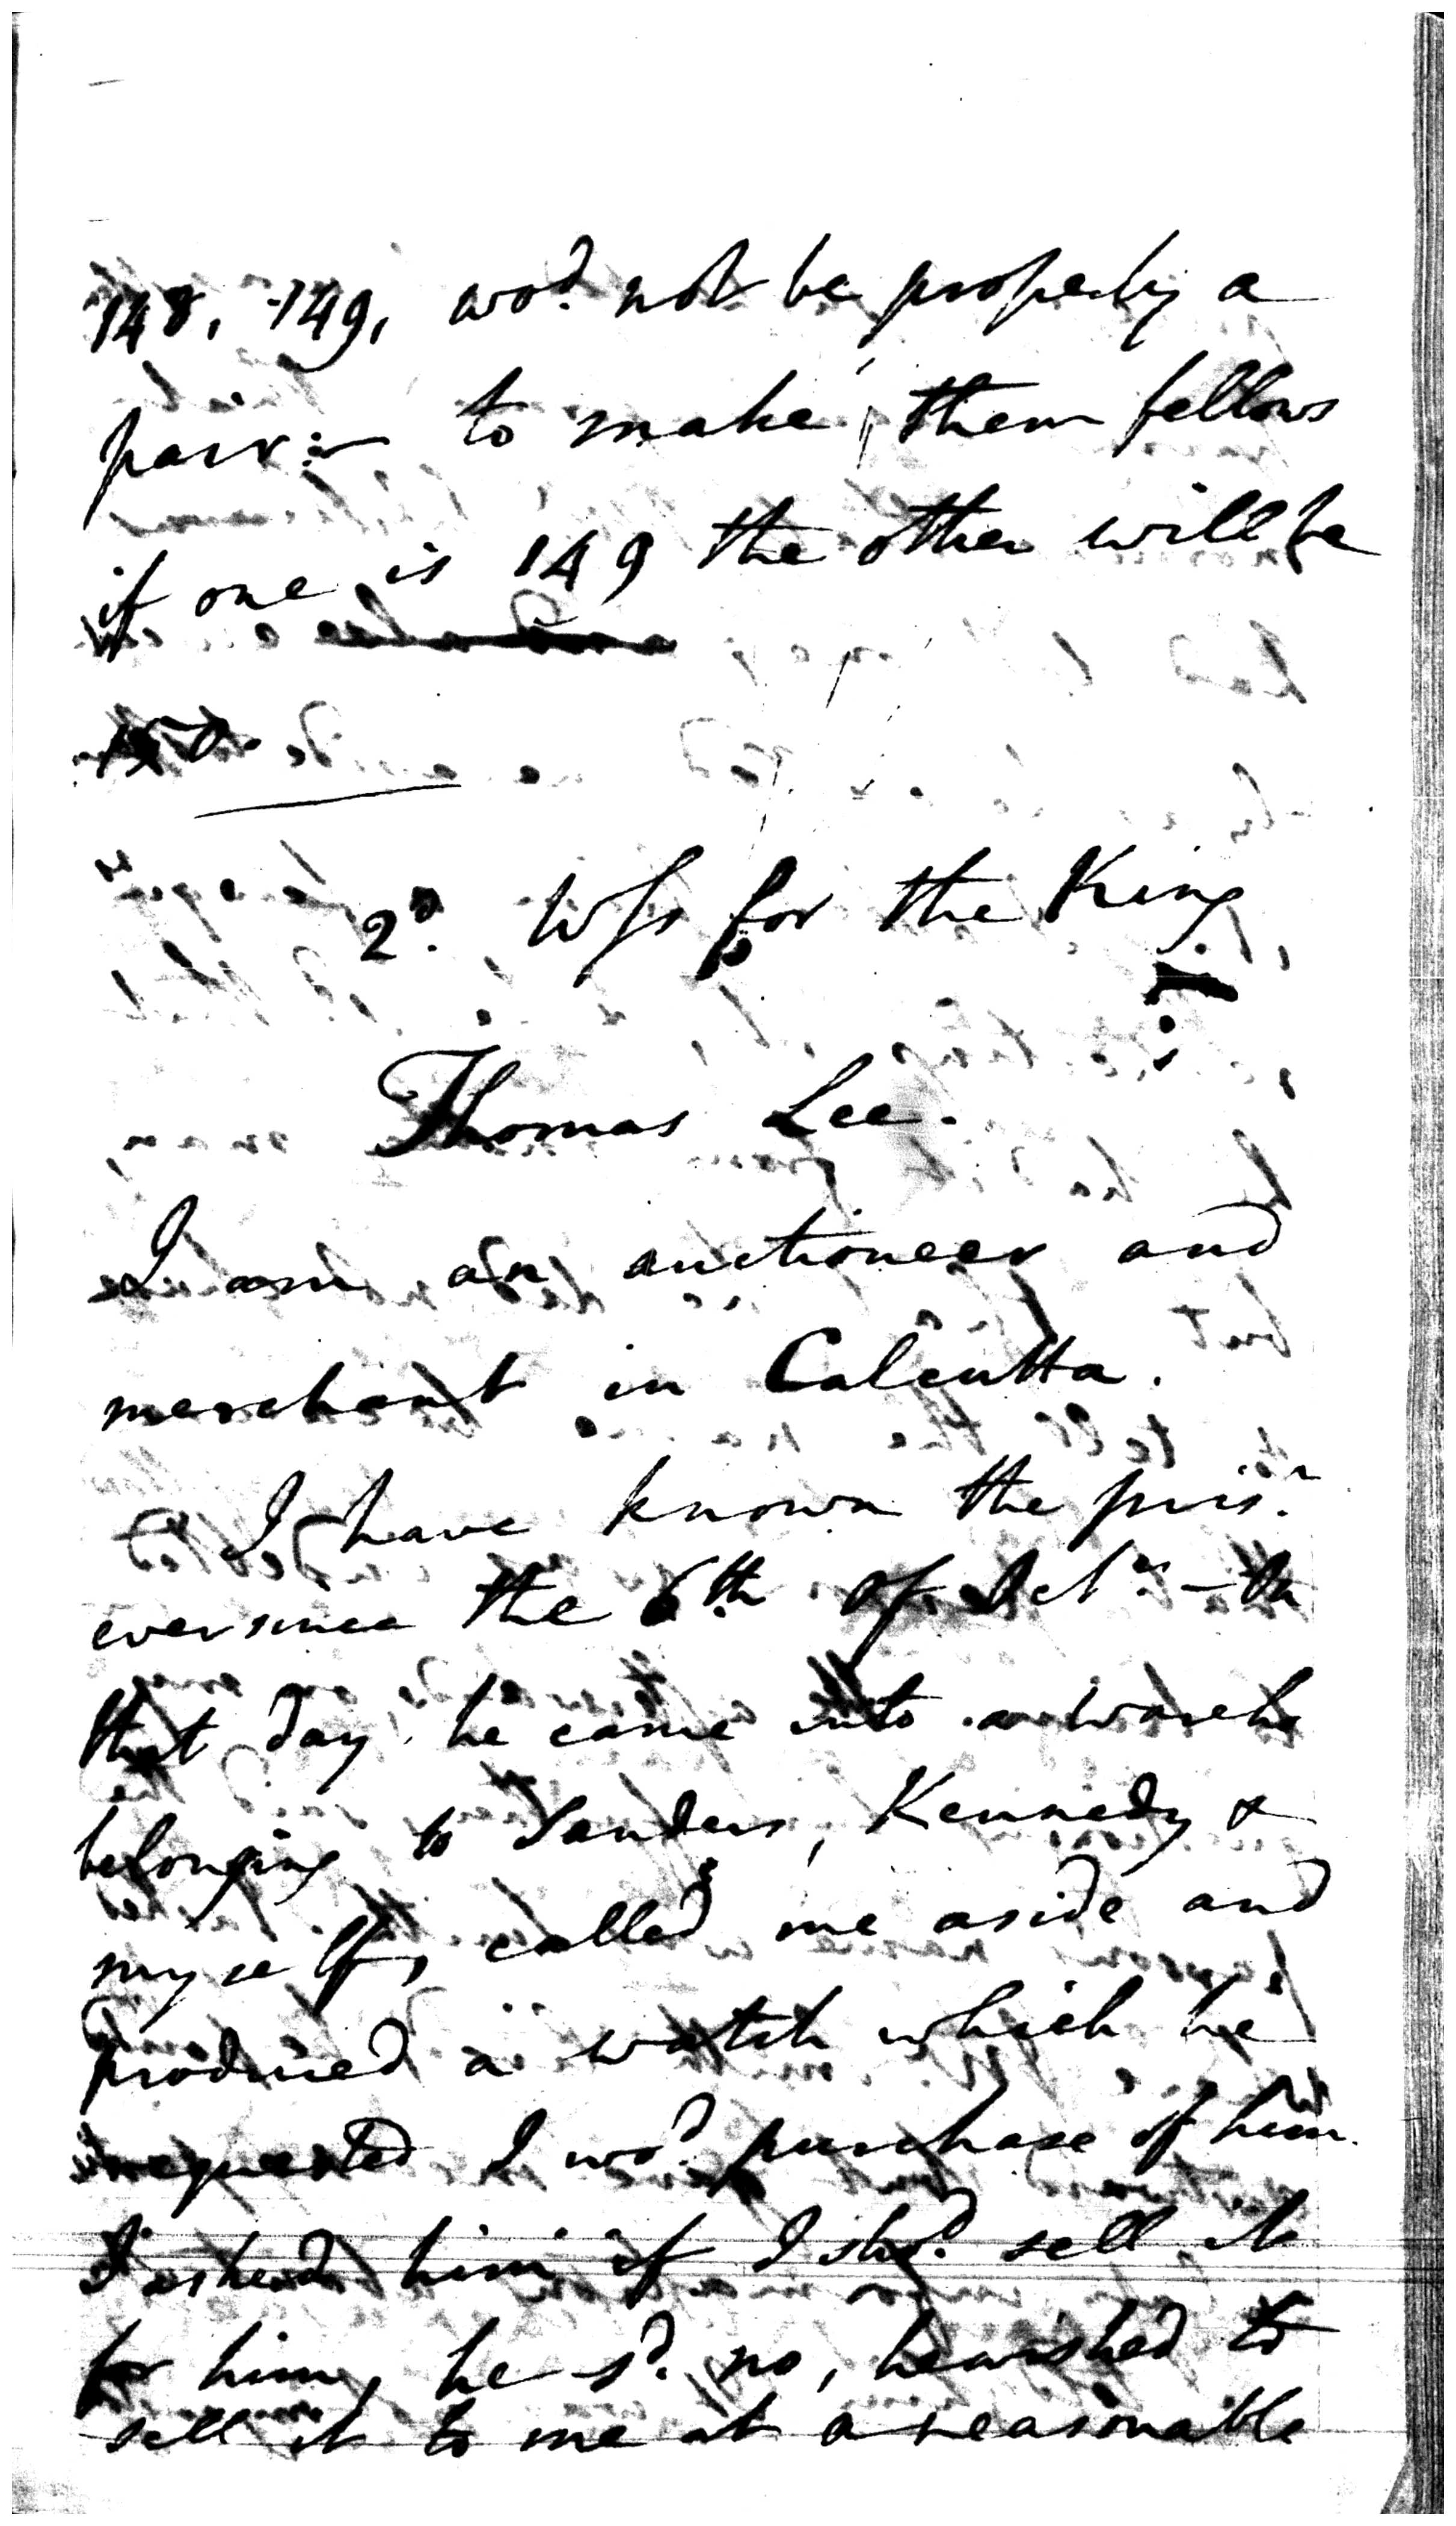 148, 149, wod. not be properly a
pair :- to make them fellows
if one is 149 the other will be
150.
2d. Wss for the King
Thomas Lee.
I am an auctioneer and
merchant in Calcutta.
I have known the prisr.
ever since the 6th of Octr -
that day he came into a wareho
belonging to Sanders, Kennedy &
myself, called me aside and
produced a watch which he
requested I wod. purchase of him.
I asked him if I shd. sell it
for him, he sd. no, he wished to
sell it to me at a reasonable